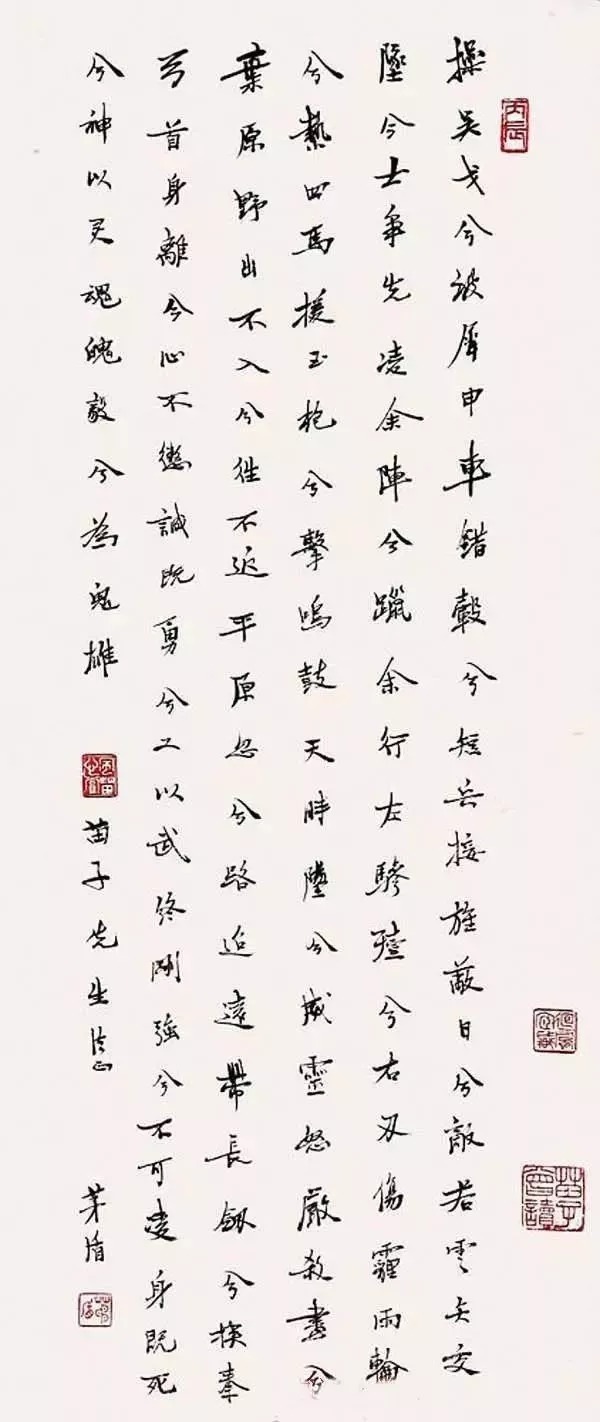 丙辰
操吴戈兮被犀甲車錯轂兮短兵接旌蔽日兮敵若雲矢交
墜兮士爭先凌余陣兮躐余行左驂殪兮右刃傷霾兩輪
兮縶四馬援玉枹兮擊鳴鼓天時墜兮威靈怒嚴殺盡兮
棄原野出不入兮往不返平原忽兮路迢遠帶長劔兮挾秦
弓首身離兮心不懲誠既勇兮又以武終剛強兮不可凌身既死
兮神以灵魂魄毅兮為鬼雄
苗子先生法正
茅盾
苗子曾讀